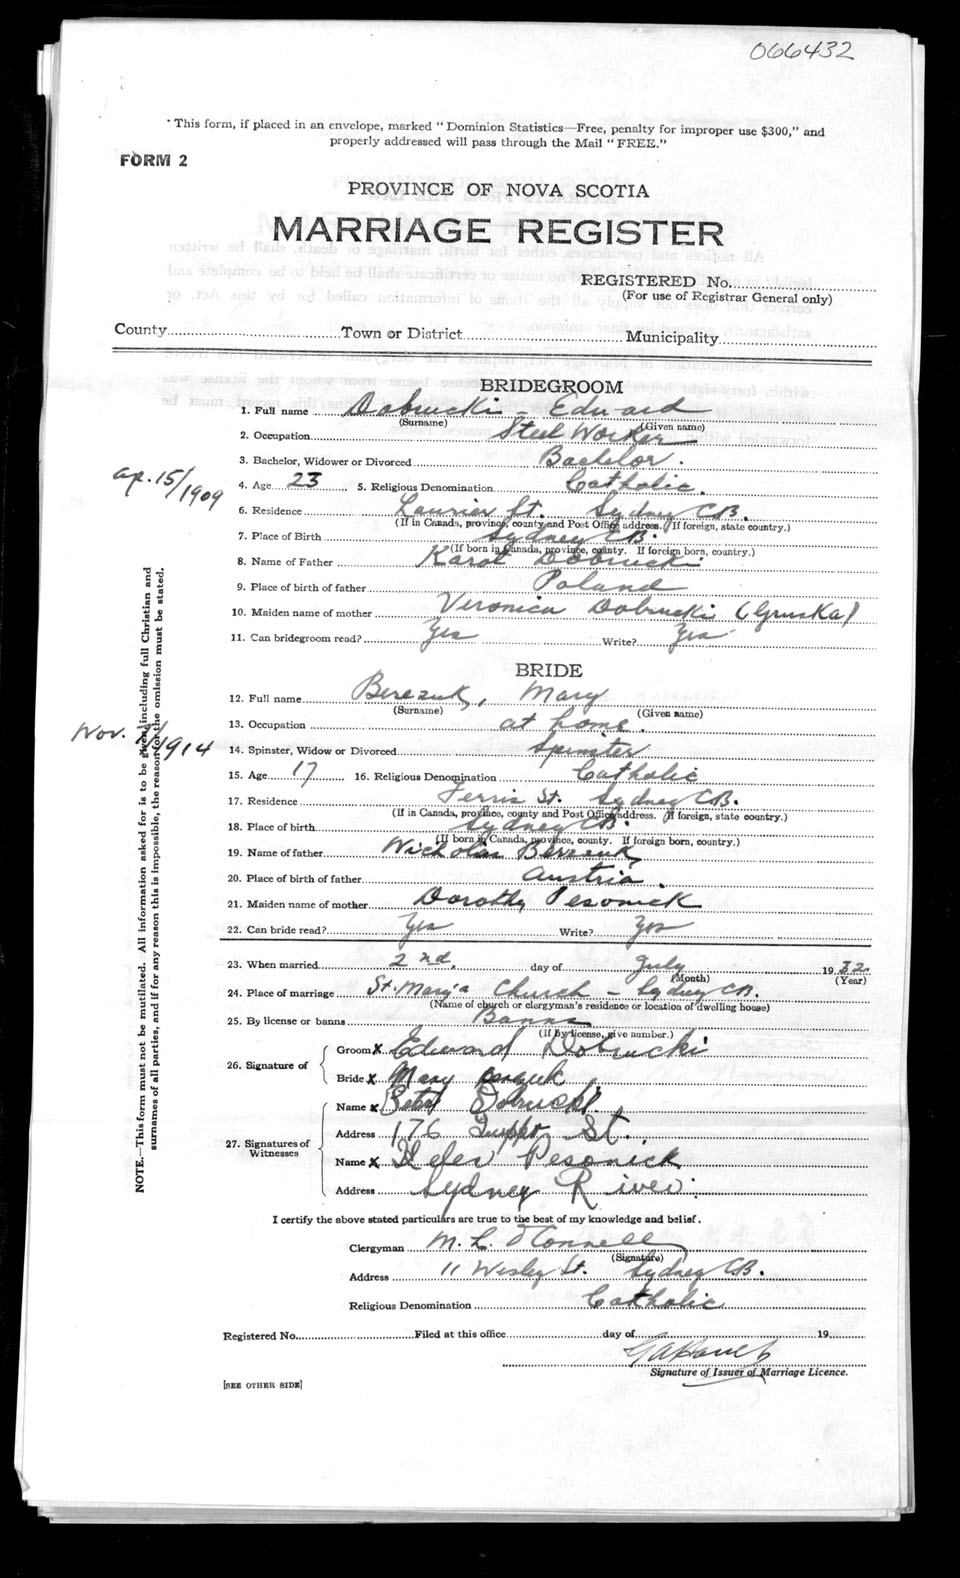 066432
This form, if placed in an envelope, marked "Dominion Statistics—Free, penalty for improper use $300," and
properly addressed will pass through the Mail "FREE."
FORM 2
PROVINCE OF NOVA SCOTIA
MARRIAGE REGISTER
REGISTERED No.
(For use of Registrar General only)
County Town or District Municipality
BRIDEGROOM
1. Full name Dobrucki - Edward
(Surname) (Given name)
2. Occupation Steel Worker
3. Bachelor, Widower or Divorced Bachelor.
Ap. 15/1909
4. Age 23 5. Religious Denomination Catholic.
6. Residence Laurier St. Sydney C.B.
(If in Canada, province, county and Post Office address. If foreign, state country.)
7. Place of Birth Sydney C.B.
(If born in Canada, province, county. If foreign born, country.)
8. Name of Father Karol Dobrucki
9. Place of birth of father Poland
10. Maiden name of mother Veronica Dobrucki (Gruska)
11. Can bridegroom read? Yes Write? Yes
BRIDE
12. Full name Berezuk, Mary
(Surname) (Given name)
13. Occupation at home.
Nov. 1914
14. Spinster, Widow or Divorced Spinster
15. Age 17 16. Religious Denomination Catholic
17. Residence Ferris St. Sydney C.B.
(If in Canada, province, county and Post Office address. If foreign, state country.)
18. Place of birth Sydney C.B.
(If born in Canada, province, county. If foreign born, country.)
19. Name of father Nicholas Berezuk
20. Place of birth of father Austria.
21. Maiden name of mother Dorothy Pesonick
22. Can bride read? Yes Write? Yes
23. When married 2nd. day of July 1932
(Month) (Year)
24. Place of marriage St. Mary's Church - Sydney C.B.
(Name of church or clergyman's residence or location of dwelling house)
25. By license or banns Banns
(If by license, give number.)
26. Signature of Groom x Edward Dobrucki
Bride x Mary
27. Signatures of Witnesses Name x Dobrucki
Address 176 St.
Name x Helen Pesonick
Address Sydney River
I certify the above stated particulars are true to the best of my knowledge and belief.
Clergyman M. L. O'Connell
(Signature)
Address 11 Wesley St. Sydney C.B.
Religious Denomination Catholic
Registered No. Filed at this office day of 19
Signature of Issuer of Marriage Licence.
[SEE OTHER SIDE]
NOTE.—This form must not be mutilated. All information asked for is to be given, including full Christian and
surnames of all parties, and if for any reason this is impossible, the reason for the omission must be stated.